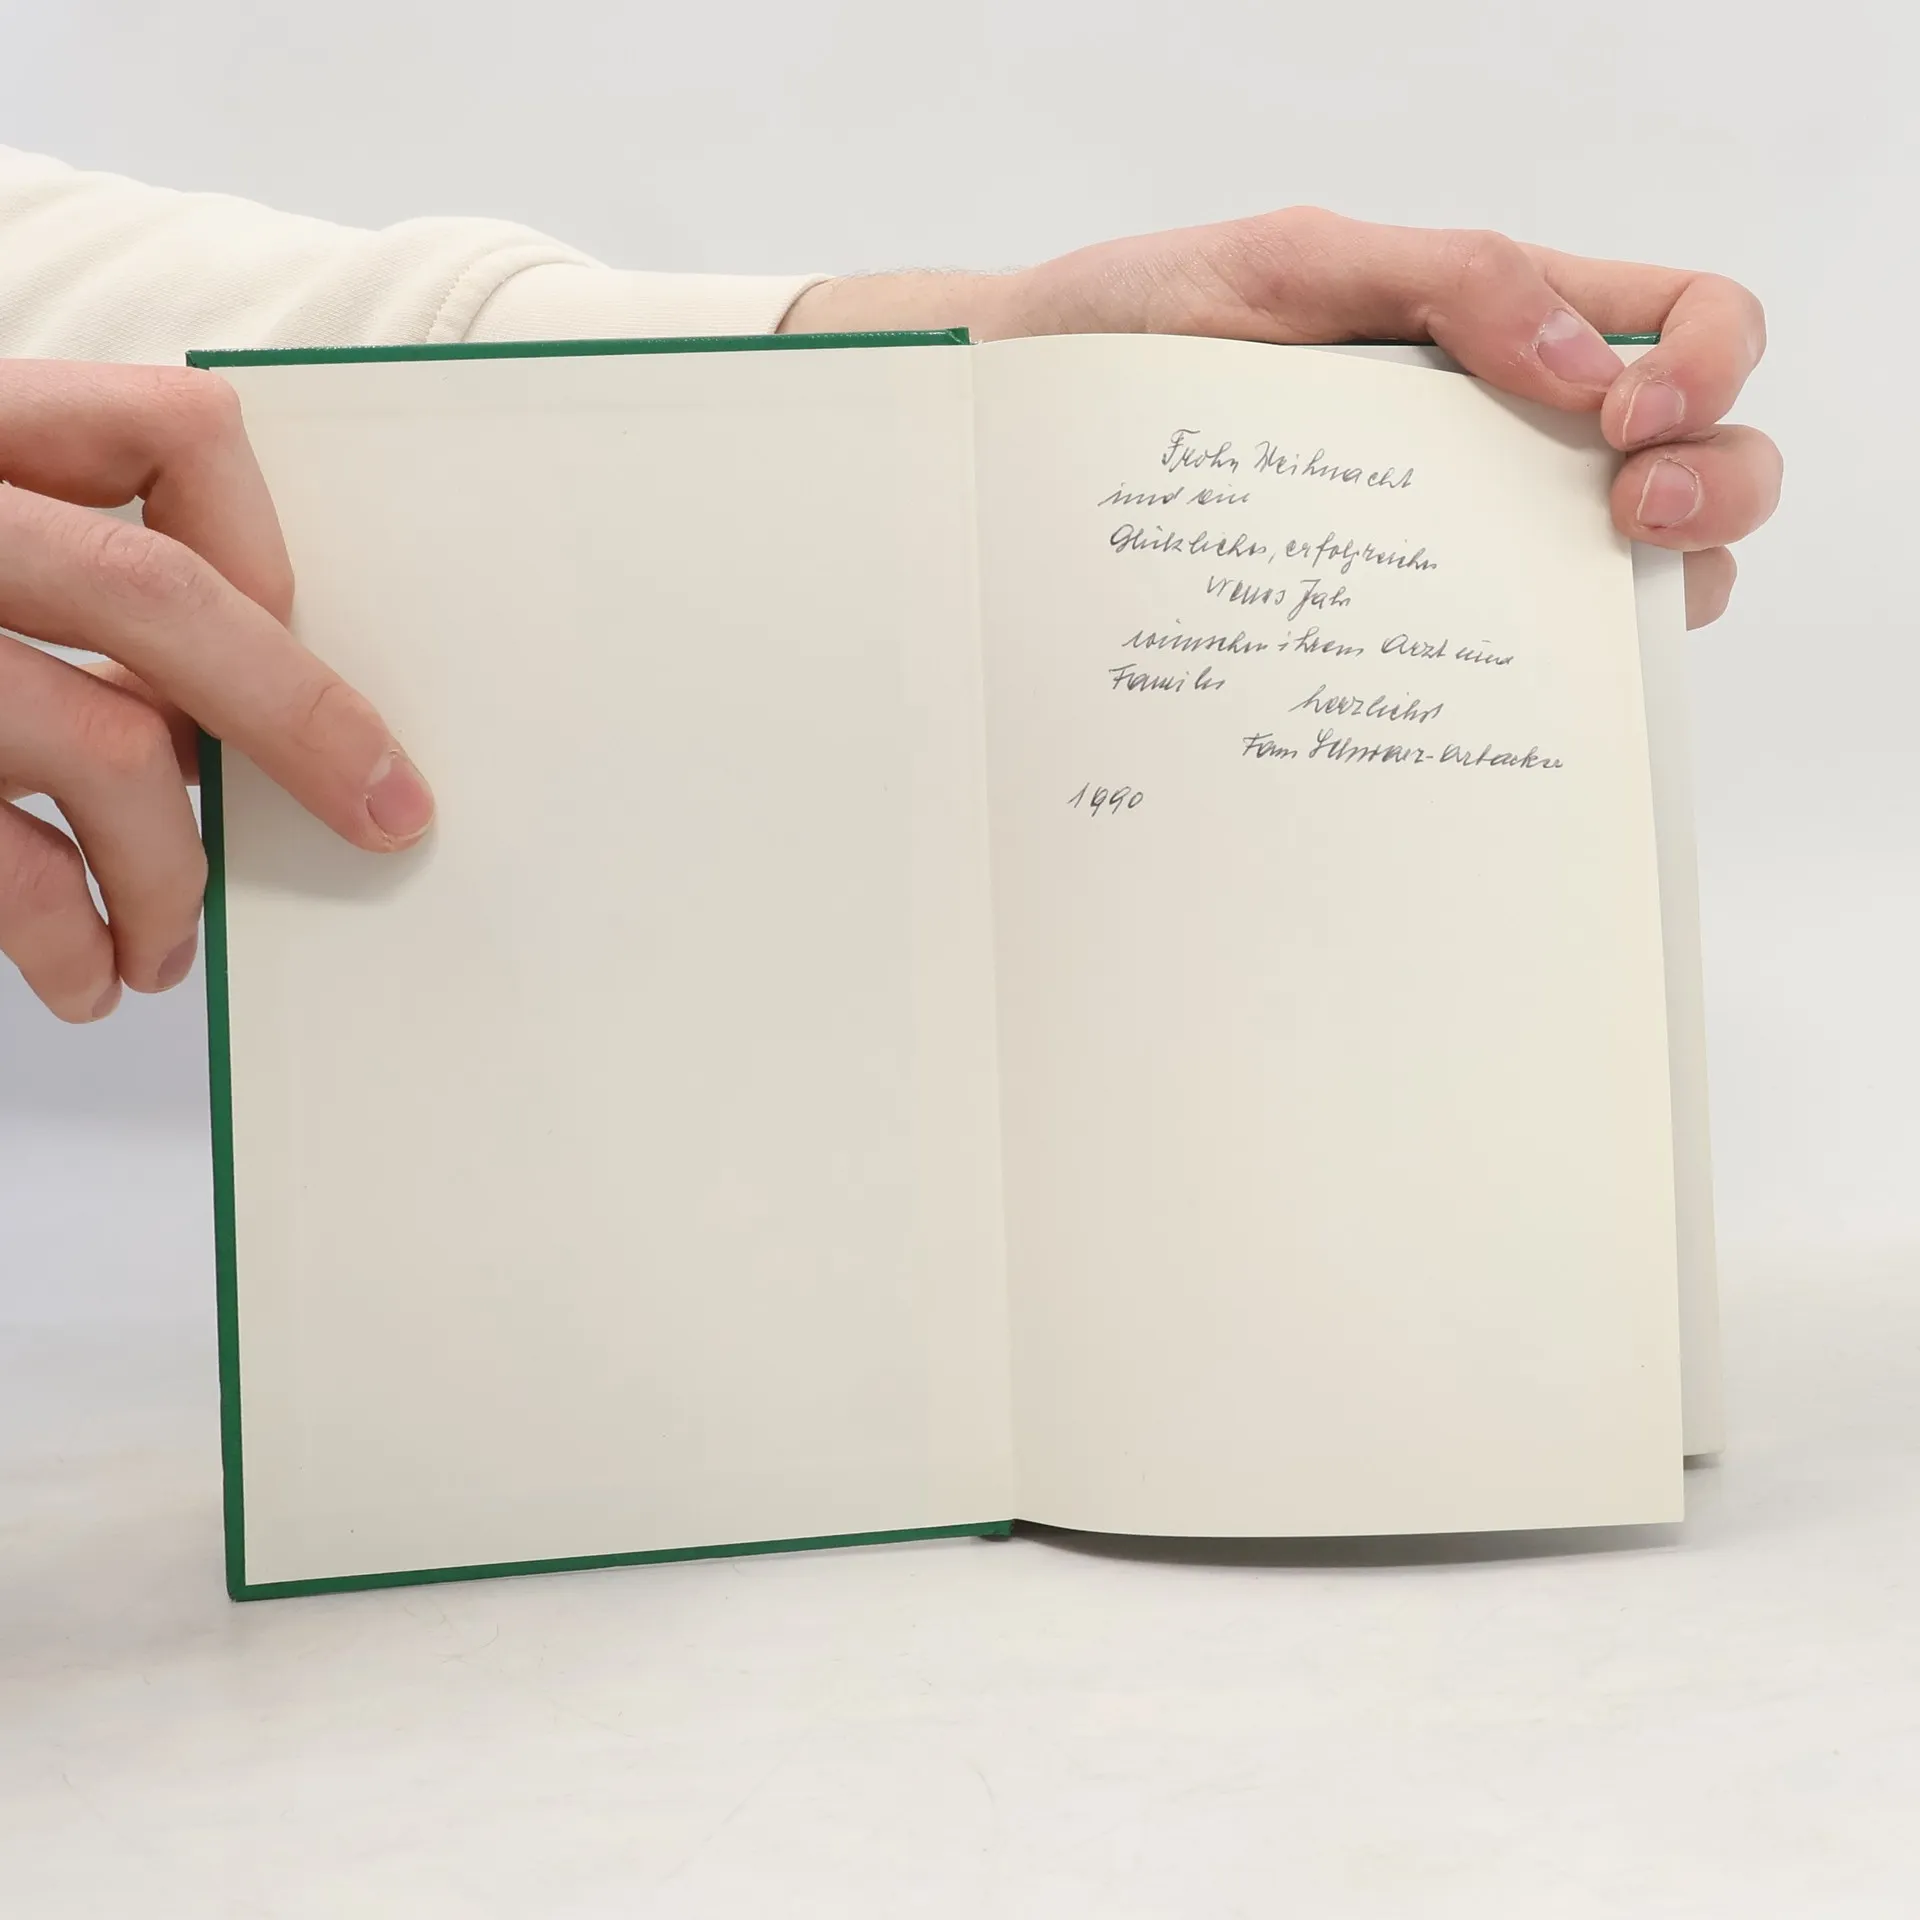 Frohe Weihnacht
und ein
Glückliches, erfolgreiches
neues Jahr
wünschen ihrem Arzt und
Familie
herzlichst
Fam
1990